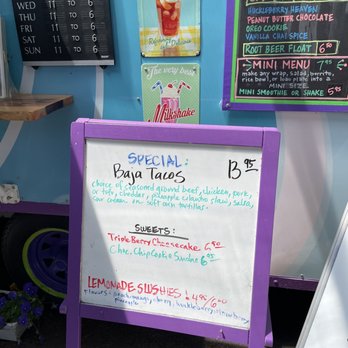 WED 11 to 6
THU 11 to 6
FRI 11 to 6
SAT 11 to 6
SUN
Refreshing
The very best
Milkshake
HUCKLEBERRY HEAVEN
PEANUT BUTTER CHOCOLATE
OREO COOKIE
VANILLA CHAI SPICE
ROOT BEER FLOAT 6.50
MINI MENU 7.95
make any wrap, salad, burrito,
rice bowl, or loco plate into a
MINI SIZE
MINI SMOOTHIE OR SHAKE 5.95
SPECIAL:
Baja Tacos 13.95
choice of seasoned ground beef, chicken, pork,
or tofu, cheddar, pineapple cilantro slaw, salsa,
sour cream in soft corn tortillas.
SWEETS:
Triple Berry Cheesecake 6.50
Choc. Chip Cookie Sundae 6.95
LEMONADE SLUSHIES! 4.95/6.00
Flavors: peach, mango, cherry, huckleberry, strawberry